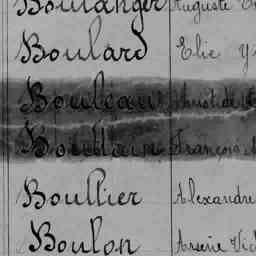 Boulanger Auguste
Boulard Elie
Bouleau Aristide
Boullain François
Boullier Alexandre
Boulon Arsène Vic